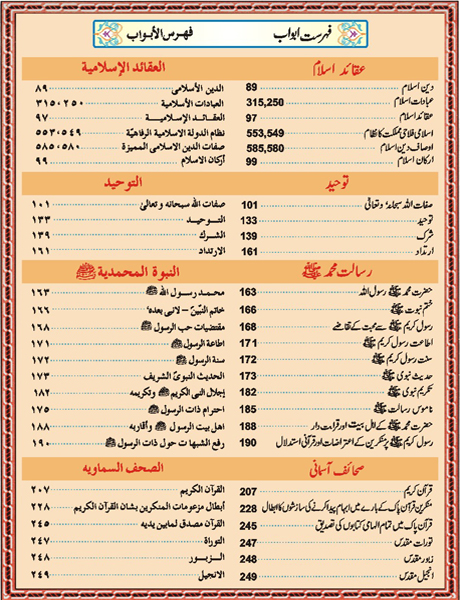 فہرست ابواب
عقائد اسلام
دین اسلام 89
عبادات اسلام 315,250
عقائد اسلام 97
اسلامی فلاحی مملکت کا نظام 553,549
اوصاف دین اسلام 585,580
ارکان اسلام 99
توحید
صفات اللہ سبحانہ وتعالیٰ 101
توحید 133
شرک 139
ارتداد 161
رسالت محمدﷺ
حضرت محمدﷺ رسول اللہ 163
ختم نبوت 166
رسول کریمﷺ سے محبت کے تقاضے 168
اطاعت رسول کریمﷺ 171
سنت رسول کریمﷺ 172
حدیث نبویﷺ 173
تکریم نبویﷺ 182
ناموس رسالتﷺ 185
حضرت محمدﷺ کے اہل بیت اور قرابت دار 188
رسول کریمﷺ پر منکرین کے اعتراضات اور قرآنی استدلال 190
صحائف آسمانی
قرآن کریم 207
منکرین قرآن پاک کے بارے میں ابہام پیدا کرنے کی سازشوں کا ابطال 228
قرآن پاک میں تمام الہامی کتابوں کی تصدیق 245
تورات مقدس 247
زبور مقدس 248
انجیل مقدس 249
فهرس الأبواب
العقائد الإسلامية
الدين الأسلامى ٨٩
العبادات الأسلامية ٣١٥،٢٥٠
العقـائـد الإسلاميــة ٩٧
نظام الدولة الاسلامية الرفاهيّة ٥٥٣،٥٤٩
صفات الدين الاسلامى المميزة ٥٨٥،٥٨٠
أركان الاسلام ٩٩
التوحيد
صفات الله سبحانه وتعالىٰ ١٠١
التوـحيـد ١٣٣
الشرك ١٣٩
الارتداد ١٦١
النبوة المحمدية ﷺ
محمـد رسـول الله ﷺ ١٦٣
خاتم النبيّنؐ – لانبى بعدهؐ ١٦٦
مقتضيات حب الرسول ﷺ ١٦٨
اطاعة الرسول ﷺ ١٧١
سنة الرسول ﷺ ١٧٢
الحديث النبوىّ الشريف ١٧٣
إجلال النبى الكريم ﷺ وتكريمه ١٨٢
احترام ذات الرسول ﷺ ١٧٥
اهل بيت الرسول ﷺ وأقاربه ١٨٨
رفع الشبهات حول ذات الرسول ﷺ ١٩٠
الصحف السماويه
القرآن الكريم ٢٠٧
أبطال مزعومات المنكرين بشان القرآن الكريم ٢٢٨
القرآن مصدق لمابين يديه ٢٤٥
التوراة ٢٤٧
الـزبــور ٢٤٨
الانجيل ٢٤٩